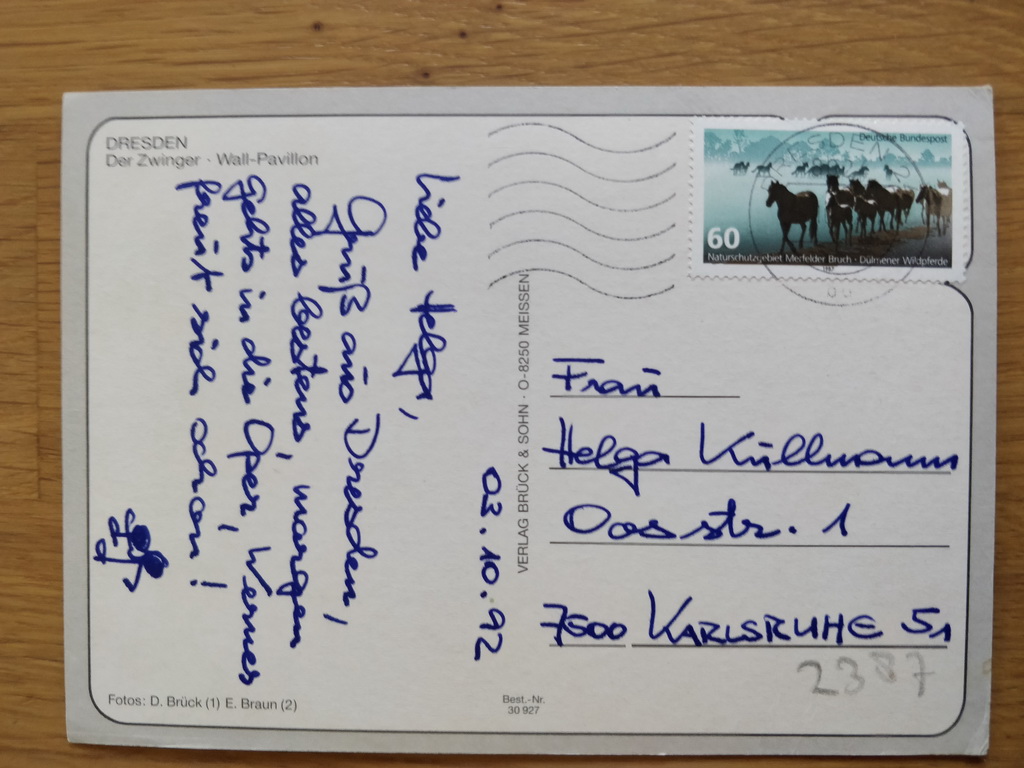 DRESDEN
Der Zwinger · Wall-Pavillon
03.10.92
Liebe Helga,
Gruß aus Dresden,
alles bestens, morgen
gehts in die Oper, Werner
freut sich schon!
Fotos: D. Brück (1) E. Braun (2)
VERLAG BRÜCK & SOHN · O-8250 MEISSEN
Best.-Nr.
30 927
Deutsche Bundespost
60
Naturschutzgebiet Merfelder Bruch · Dülmener Wildpferde
DRESDEN
Frau
Helga Küllmann
Oosstr. 1
7500 KARLSRUHE 51
2387